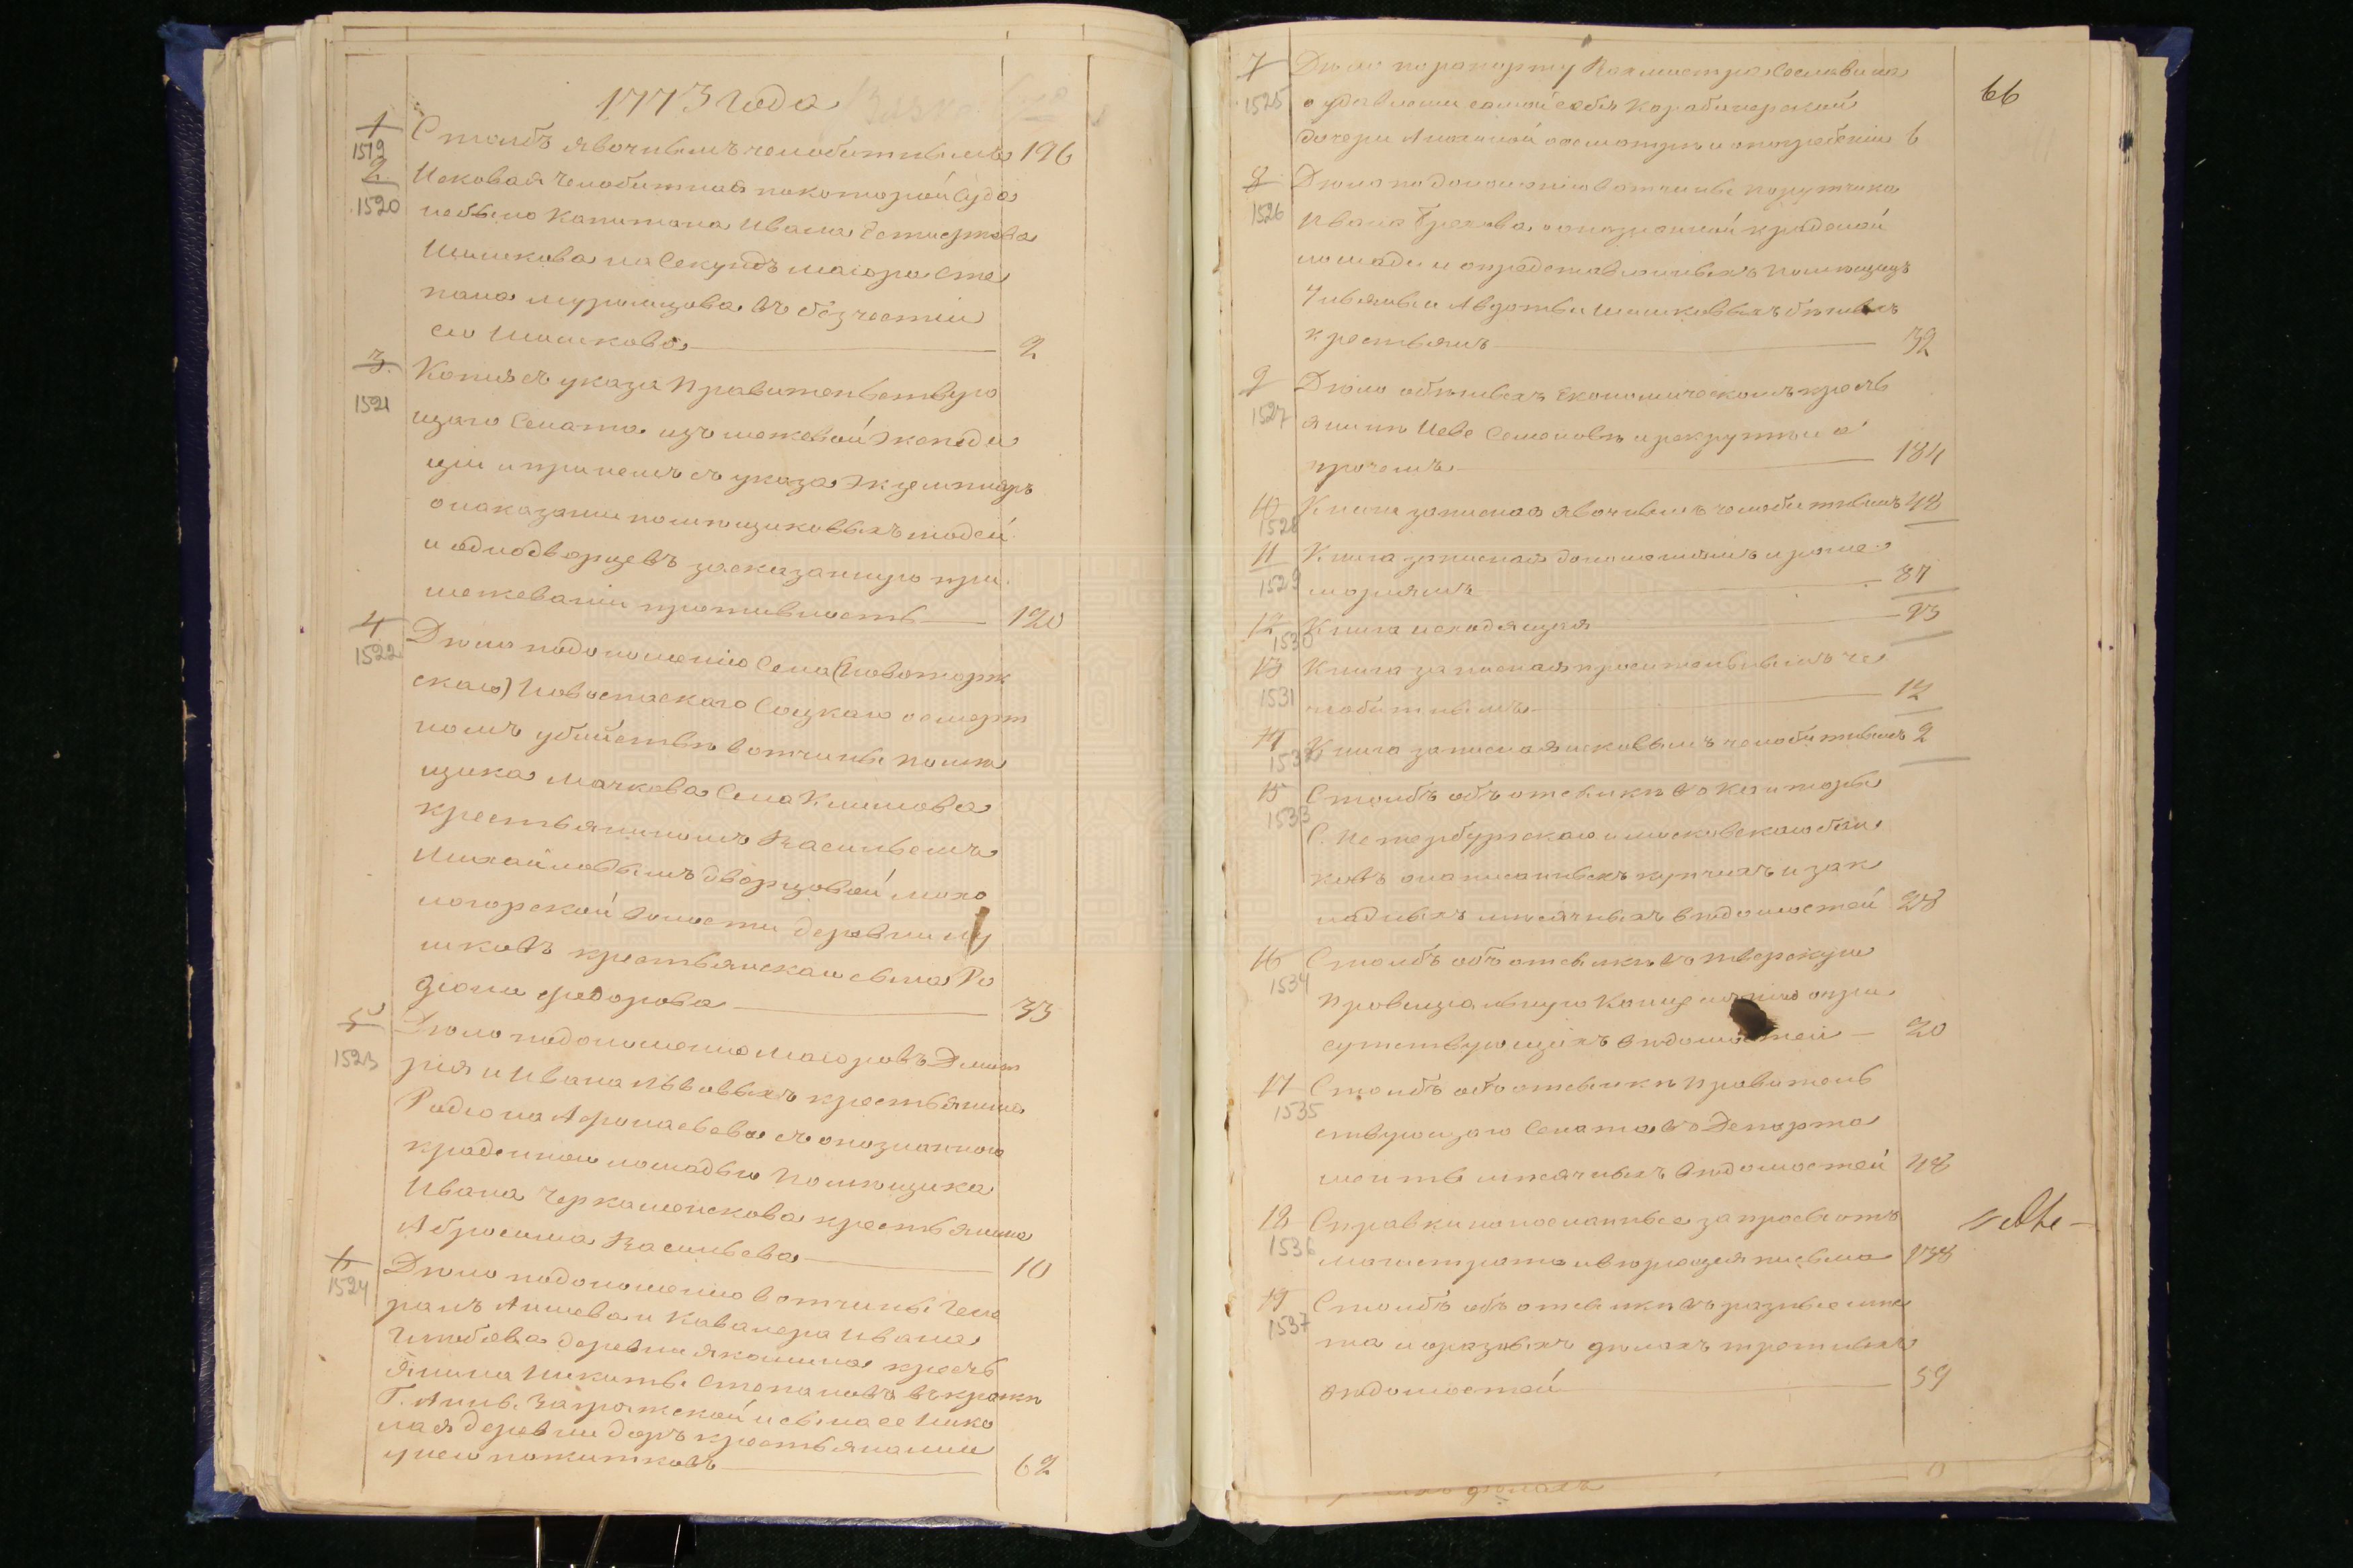 1773 года
1
1519
Столбъ явочнымъ челобитнымъ 196
2
1520
Исковая челобитная покоторой суда
небыло капитана Ивана Четвертова
Шишкова на Секундъ маіора Сте
пана Муромцова въ безчестіи
ево Шишкова 2
3
1521
Копия съ указа Правительствую
щаго Сената изъ межевой Экспеди
ціи и принемъ съ указа Экземпляръ
онаказаніи помещиковыхъ людей
и однодворцевъ засказанную при
межеваніи противность 120
4
1522
Дѣло подоношенію Села (Новоторж
скаго) Новоспаскаго Соцкаго осмерт
номъ убийствѣ вотчины помѣ
щика Мачкова Села Климова
крестьяниномъ Васильемъ
Михайловымъ дворцовой
волости деревни
крестьянскаго сына Ро
діона Федорова 33
5
1523
Дѣло подоношению маіоровъ Дмит
рія и Ивана Львовыхъ крестьянина
Радіона Афонасьева съ опознанною
краденною лошадью помѣщика
Ивана крестьянина
Абросима Васильева 10
6
1524
Дѣло подоношению вотчины Гене
ралъ Аншефа и Кавалера Ивана
Глебова деревни Яконина кресть
янина Никиты Степанова въ кражѣ
Г. Анны Загряжской и сына ее Нико
лая деревни крестьянами
у него пожитковъ 62
66
7
1525
Дѣло порапорту Вахмистра
о удавлении самой себя Карабинерской
дочери осмотре и опогребении 6
8
1526
Дѣло подоношению вотчины порутчика
Ивана опознанной краденой
лошади и опредставленныхъ помѣщицъ
Ульяны и Авдотьи Шишковыхъ беглыхъ
крестьянъ 32
9
1527
Дѣло обеглыхъ Економическомъ кресть
янинѣ Иеве Семеновѣ и рекрутѣ и о
прочемъ 184
10
1528
Книга записная явочнымъ челобитнымъ 48
11
1529
Книга записная доношениямъ и проме
моріямъ 87
12
1530
Книга исходящая 93
13
1531
Книга записная просительнымъ че
лобитнымъ 12
14
1532
Книга записная исковымъ челобитнымъ 2
15
1533
Столбъ объ отсылкѣ во Канторы
С. Петербургскаго и московскаго бан
ковъ онаписанныхъ купчихъ и зак
ладныхъ мѣсячныхъ вѣдомостей 28
16
1534
Столбъ объ отсылкѣ во тверскую
Провинціальную Канцелярію опри
сутствующихъ вѣдомостей 20
17
1535
Столбъ объ отсылкѣ Правитель
ствующаго Сената во Департа
менты мѣсячныхъ вѣдомостей 48
18
1536
Справки попосланные запросы отъ
магистрата и верющія письма 138
19
1537
Столбъ объ отсылкѣ въ разные мѣс
та и оразныхъ дѣлахъ третныхъ
вѣдомостей 59